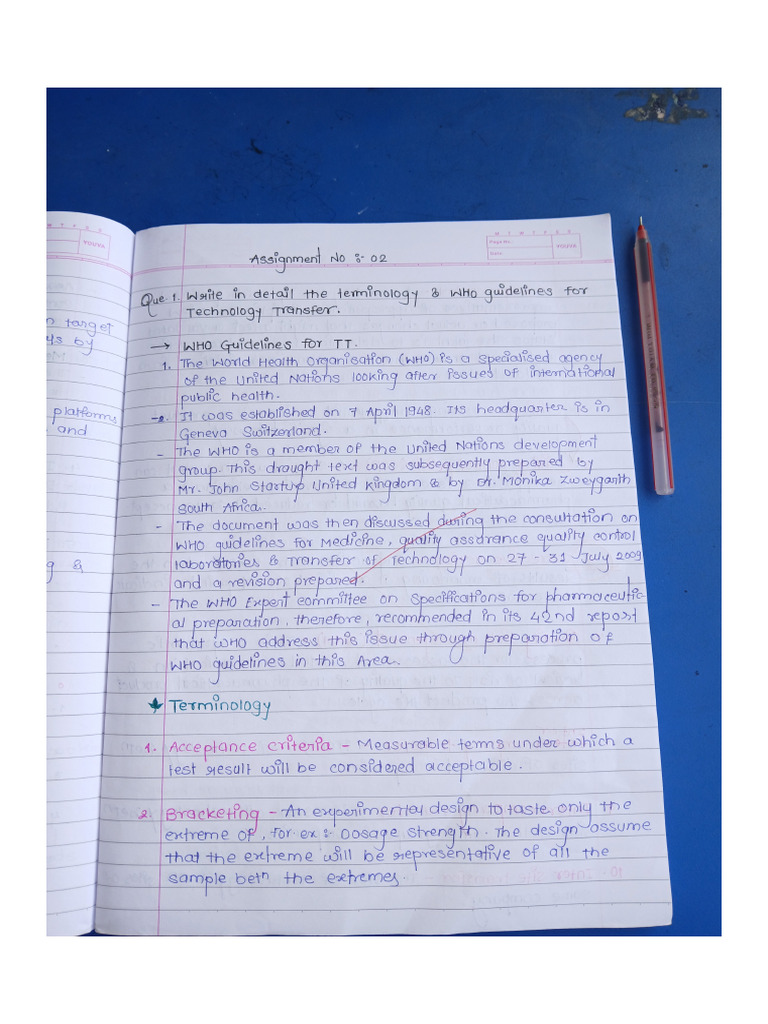 M T W T F S S
Page No.:
YOUVA
Date:
YOUVA
Assignment No :- 02
Que 1. Write in detail the terminology & WHO guidelines for
Technology Transfer.
→ WHO Guidelines for TT.
1. The World Health Organisation (WHO) is a specialised agency
of the United Nations looking after issues of international
public health.
-2. It was established on 7 April 1948. Its headquarter is in
Geneva Switzerland.
- The WHO is a member of the United Nations development
group. This draught text was subsequently prepared by
Mr. John Startup United Kingdom & by Dr. Monika Zweygarth
South Africa.
- The document was then discussed during the consultation on
WHO guidelines for Medicine, quality assurance quality control
laboratories & Transfer of Technology on 27 - 31 July 2009
and a revision prepared.
- The WHO Expert committee on specifications for pharmaceutic-
al preparation, therefore, recommended in its 42nd report
that WHO address this issue through preparation of
WHO guidelines in this Area.
Terminology
1. Acceptance criteria - Measurable terms under which a
test result will be considered acceptable.
2. Bracketing - An experimental design to taste only the
extreme of, for ex :- Dosage strength. The design assume
that the extreme will be representative of all the
sample betn the extremes.
n target
by
platforms
and
&